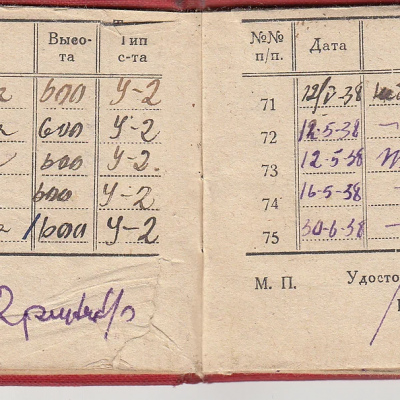 Высо- Тип
та с-та
600 У-2
600 У-2
600 У-2
600 У-2
1600 У-2
№№ Дата
п/п.
71 12/V-38
72 12-5-38
73 12-5-38
74 16-5-38
75 30-6-38
М. П. Удосто